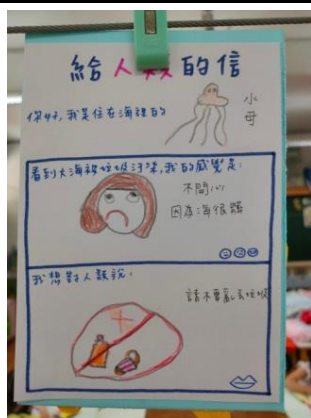 給人類的信
你好,我是住在海裡的
水母
看到大海被垃圾汙染,我的感覺是:
不開心
因為海很髒
我想對人類說:
請不要亂丟垃圾